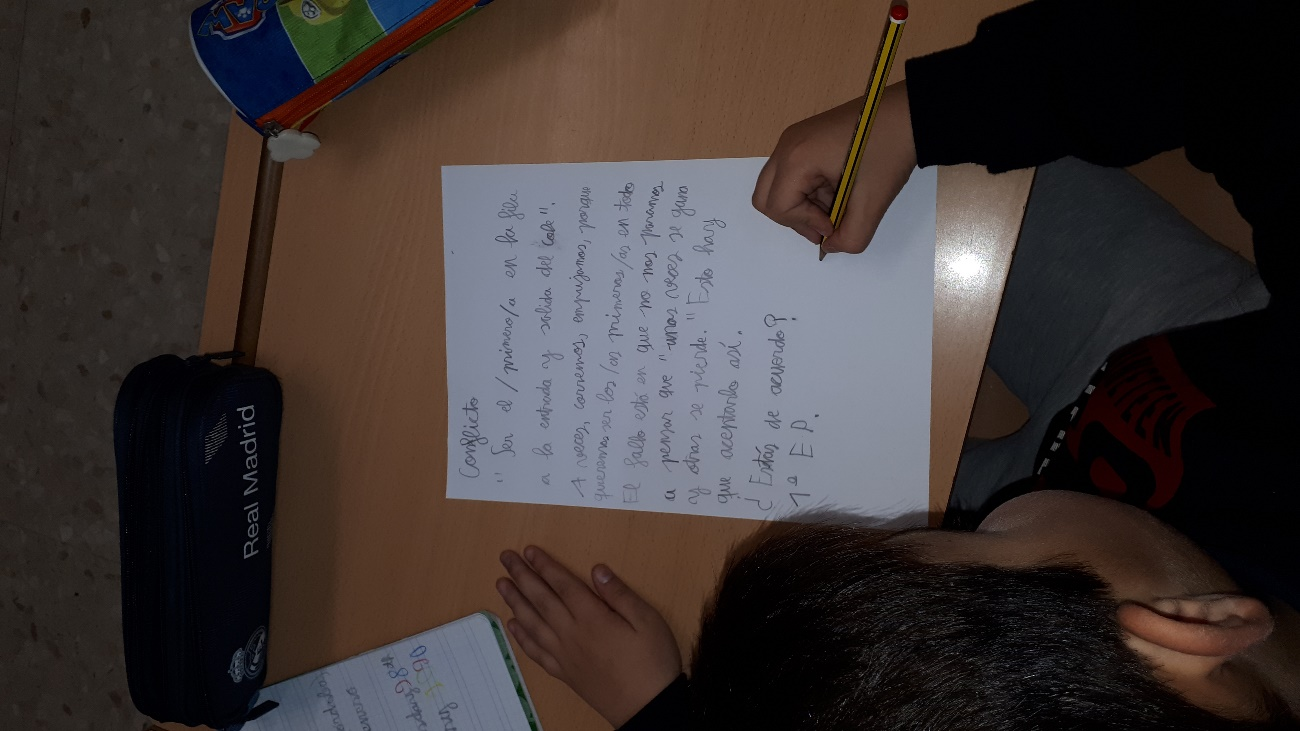 Conflicto
" Ser el / primero/a en la fila
a la entrada y salida del "cole".
A veces, corremos, empujamos, porque
queremos ser los/as primeros/as en todo
El fallo está en que no nos paramos
a pensar que "unas veces se gana
y otras se pierde." Esto hay
que aceptarlo así.
¿ Estás de acuerdo?
1º E P.
Real Madrid